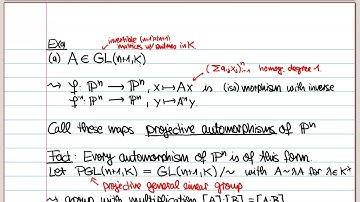 Exa
invertible (n+1)×(n+1)
matrices w/ entries in K
(a) A ∈ GL(n+1,K)
(Σ a_ij x_j)_{i=1}^n homog. degree 1.
⇝ φ: ℙⁿ → ℙⁿ, x ↦ Ax is (iso)morphism with inverse
φ⁻¹: ℙⁿ → ℙⁿ, y ↦ A⁻¹y.
Call these maps projective automorphisms of ℙⁿ
Fact: Every automorphism of ℙⁿ is of this form.
Let PGL(n+1,K) = GL(n+1,K)/~ with A~λA for λ∈K*
projective general linear group
⇝ group with multiplication [A]·[B] = [A·B]